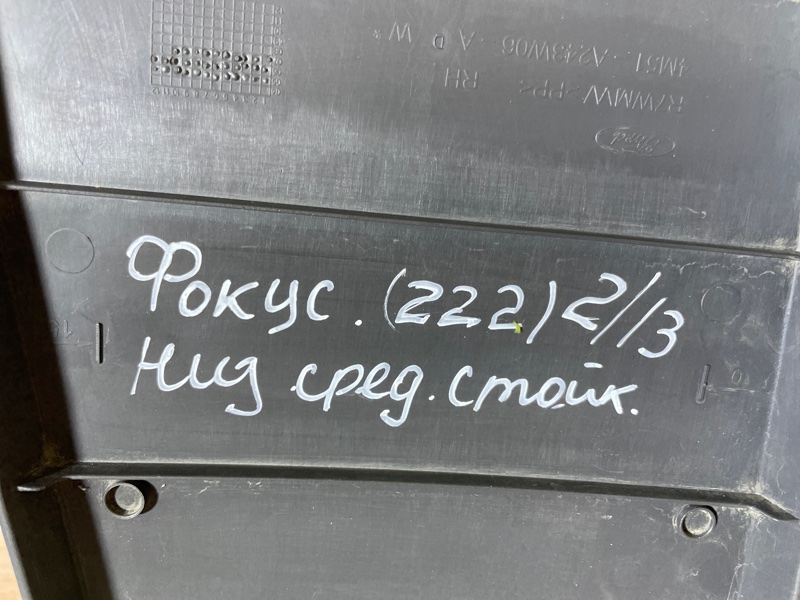 4M51-A243W06-A D W*
R/WMW >PP< RH
Ford
Фокус. (222) 2//3
Низ сред. стойк.